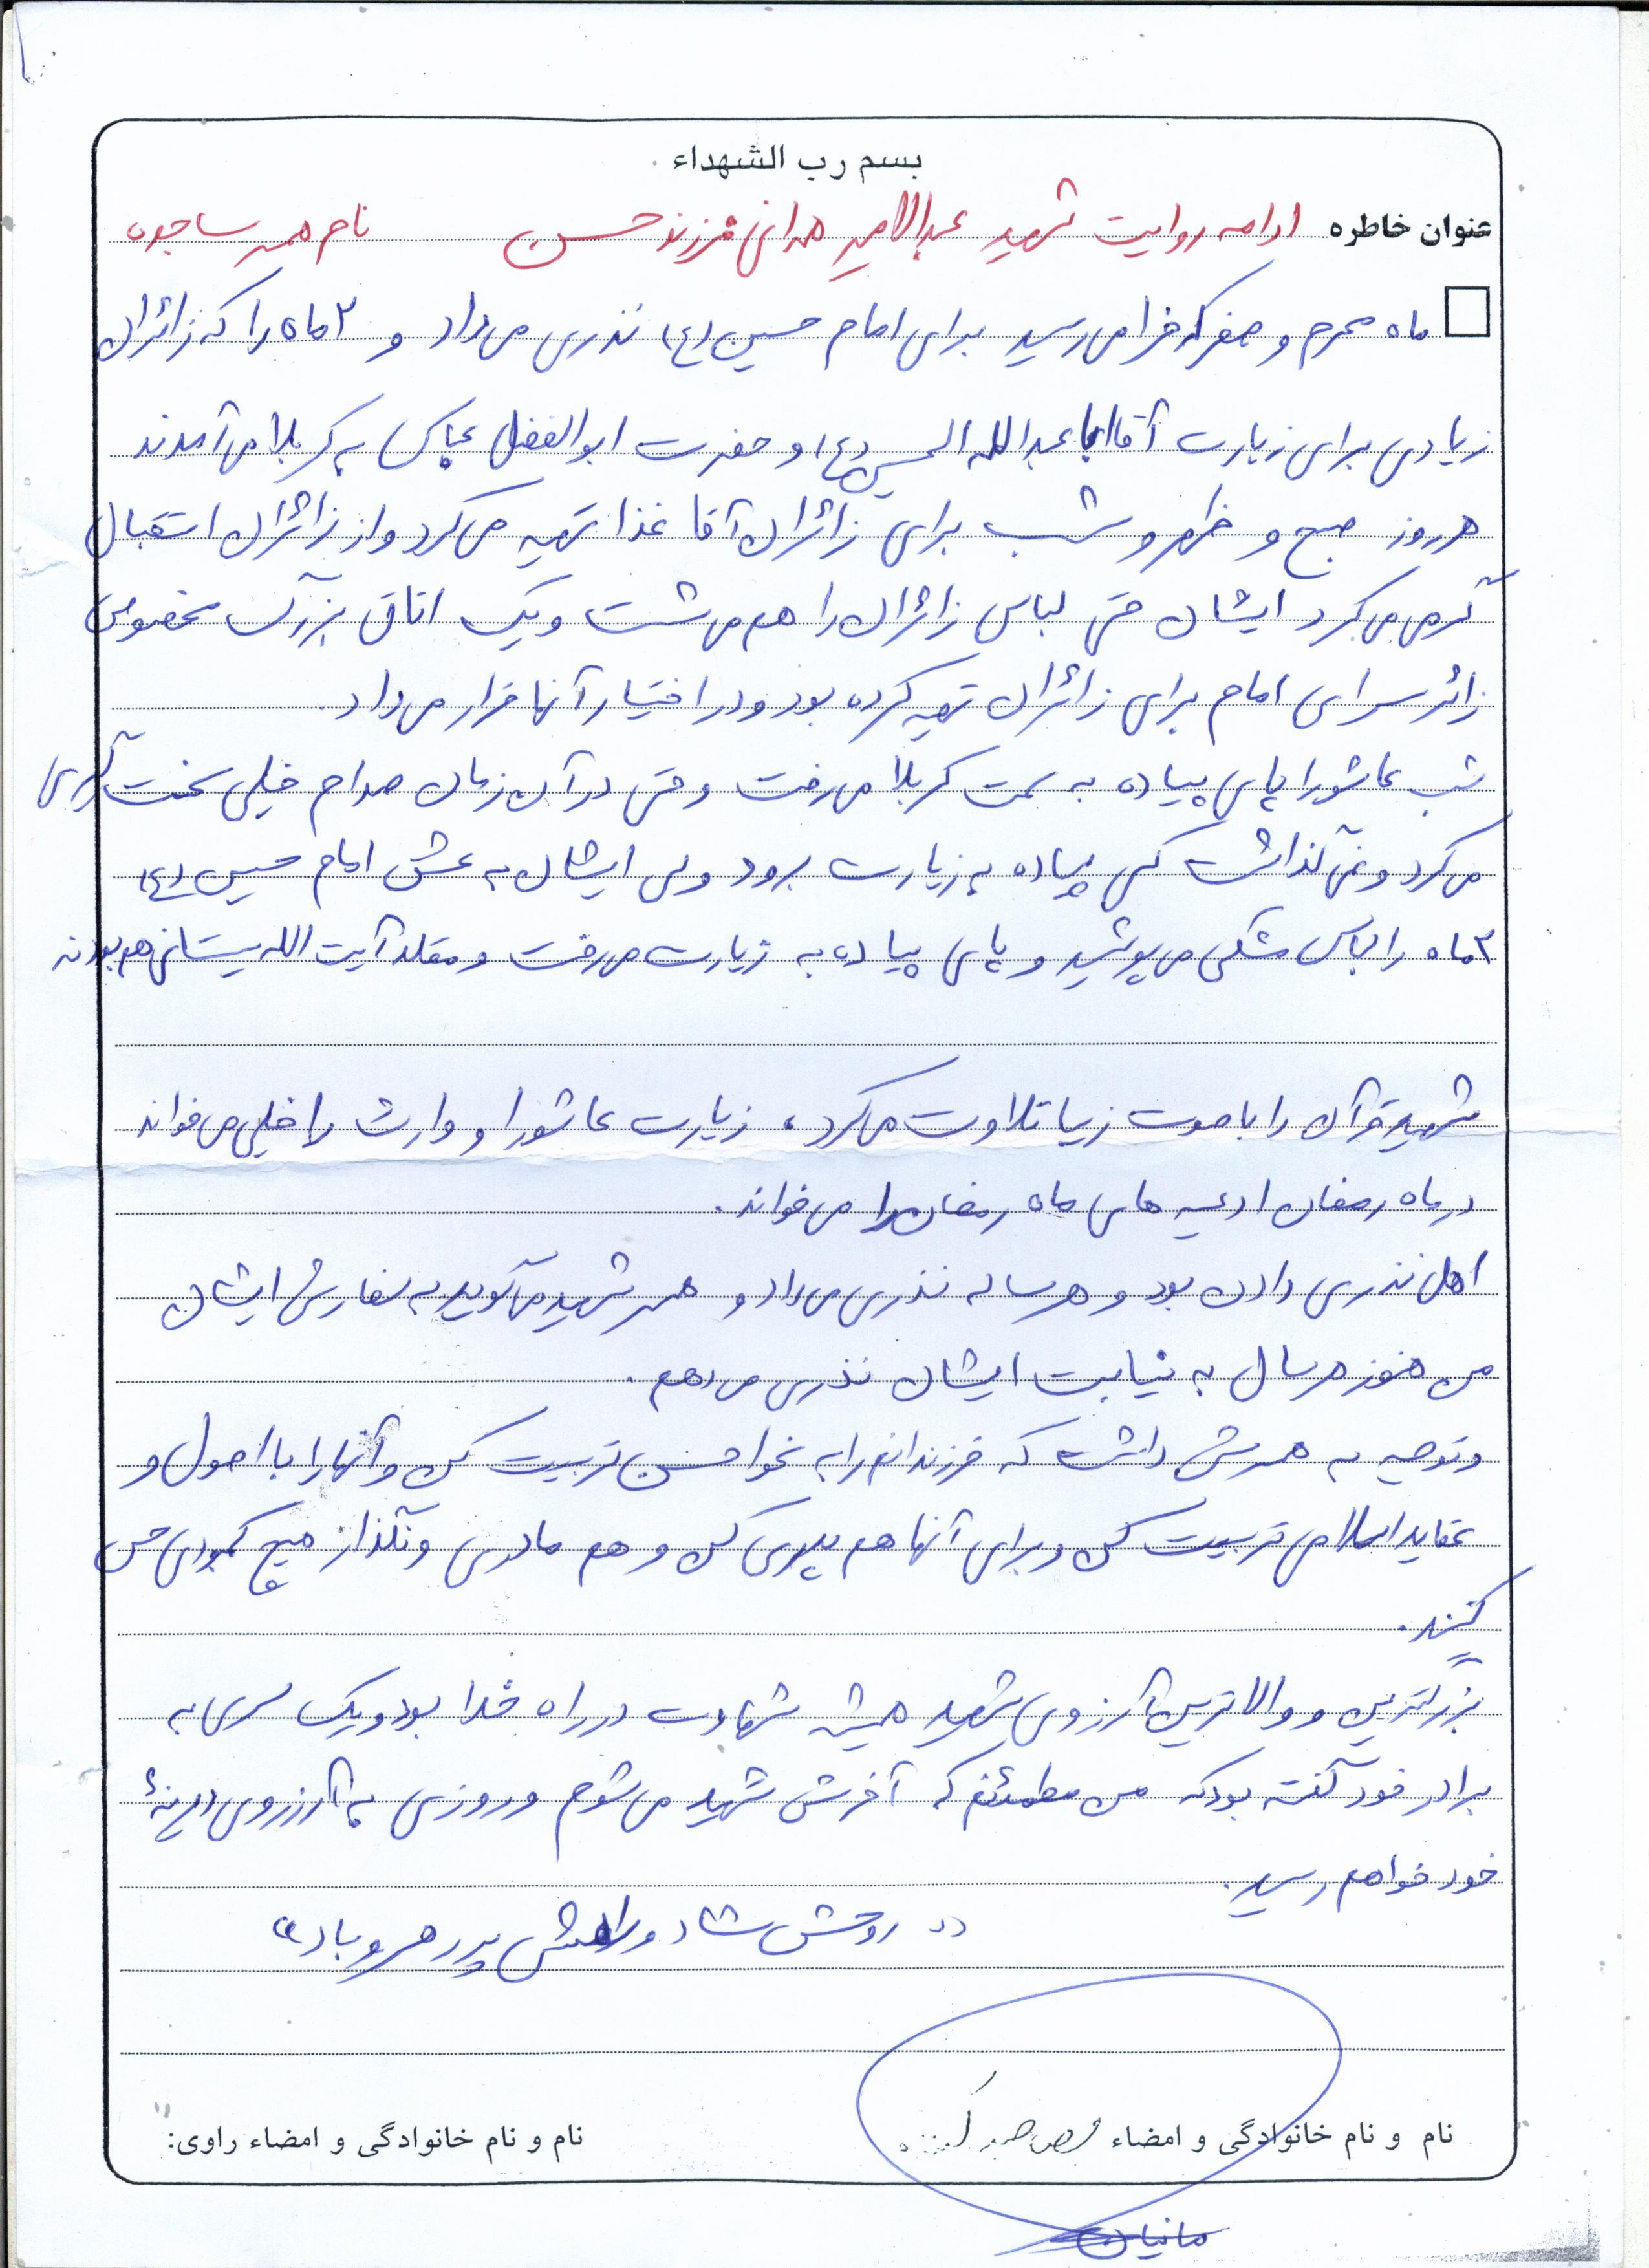 بسم رب الشهداء
عنوان خاطره ادامه روایت شهید عبدالامیر همدانی فرزند حسن نام همسر ساجده
ماه محرم و صفر که فرا می رسید برای امام حسین (ع) نذری می داد و ۲ ماه را که زائران
زیادی برای زیارت آقا ابا عبدالله الحسین (ع) و حضرت ابوالفضل عباس به کربلا می آمدند
هر روز صبح و ظهر و شب برای زائران آقا غذا تهیه می کرد و از زائران استقبال
گرمی می کرد ایشان حتی لباس زائران را هم می شست و یک اتاق بزرگ مخصوص
زائر سرای امام برای زائران تهیه کرده بود و در اختیار آنها قرار می داد.
شب عاشورا پای پیاده به سمت کربلا می رفت و حتی در آن زمان صدام خیلی سخت گیری
می کرد و نمی گذاشت کسی پیاده به زیارت برود ولی ایشان به عشق امام حسین (ع)
۲ ماه را لباس مشکی می پوشید و پای پیاده به زیارت می رفت و مقلد آیت الله سیستانی هم بودند
شهید قرآن را با صوت زیبا تلاوت می کرد، زیارت عاشورا و وارث را خیلی می خواند
در ماه رمضان ادعیه های ماه رمضان را می خواند.
اهل نذری دادن بود و هر ساله نذری می داد و همسر شهید می گوید به سفارش ایشان
من هنوز هر سال به نیابت ایشان نذری می دهم.
و توصیه به همسرش داشت که فرزندانم را به نحو احسن تربیت کن و آنها را با اصول و
عقاید اسلامی تربیت کن و برای آنها هم پدری کن و هم مادری و نگذار هیچ کمبودی حس
کنند.
بزرگترین و والاترین آرزوی شهید همیشه شهادت در راه خدا بود و یک سری به
برادر خود گفته بود که من مطمئنم که آخرش شهید می شوم و روزی به آرزوی دیرینهٔ
خود خواهم رسید.
«روحش شاد و راهش پر رهرو باد»
نام و نام خانوادگی و امضاء
نام و نام خانوادگی و امضاء راوی: